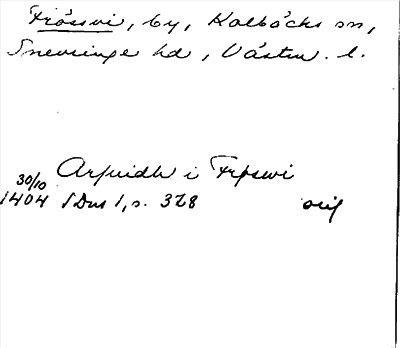 Frössvi, by, Kolbäcks sn,
Snevringe hd, Västm. l.
Arfuidh i Frøswi
30/10
1404 SDns 1, s. 328 orig